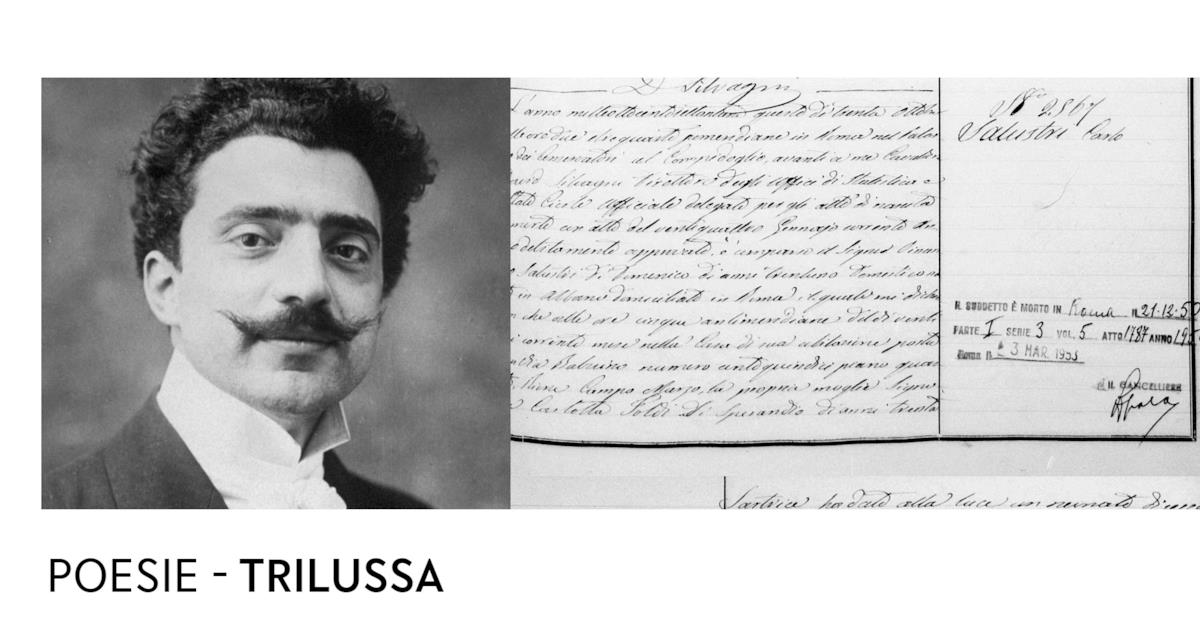 D. Silvagni
L'anno milleottocentosettantuno questo dì trenta Ottobre
alle ore due e quarti pomeridiane in Roma nel Palazzo
dei Censervatori al Campidoglio, avanti a me Cavaliere
Silvagni Direttore degli Uffici di Statistica e
Stato Civile Ufficiale delegato per gli atti di nascita
con atto del ventiquattro Gennajo corrente
debitamente approvato, è comparso il Signor
Salustri di Domenico di anni trentuno Domestico
in Albano domiciliato in Roma, il quale mi
che alle ore cinque antimeridiane del dì venti
corrente mese nella Casa di sua abitazione posta
Via Babuino numero centoquindici piano
Campo Marzo, la propria moglie Signora
Carlotta Poldi di Sperandio di anni trenta
Sartrice ha dato alla luce un neonato di
No 2867
Salustri Carlo
IL SUDDETTO È MORTO IN Roma IL 21-12-50
PARTE I SERIE 3 VOL. 5 ATTO 1787 ANNO
Roma li 3 MAR. 1953
IL CANCELLIERE
POESIE - TRILUSSA